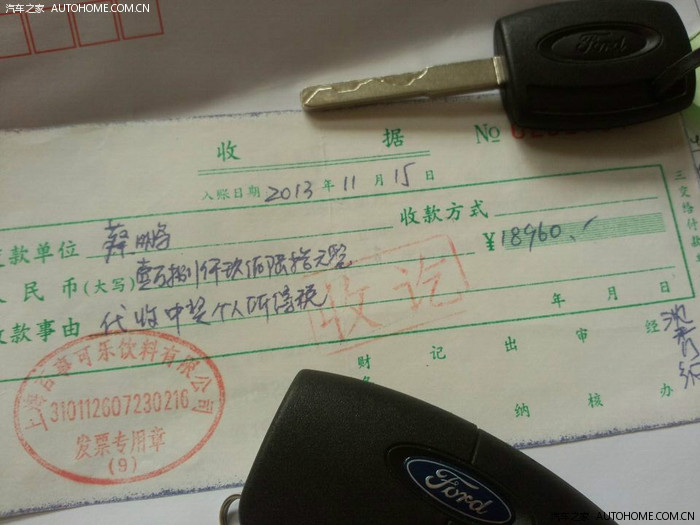 汽车之家 AUTOHOME.COM.CN
Ford
收 据 №
入账日期 2013 年 11 月 15 日
款单位 蔡鹏 收款方式
人民币(大写) 壹万捌仟玖佰陆拾元整 ¥18960.
收讫
款事由 代收中奖个人所得税
年 月 日
三交给付款
财 记 出 审 经
纳 核 办
上海百事可乐饮料有限公司
310112607230216
发票专用章
(9)
Ford
汽车之家 AUTOHOME.COM.CN